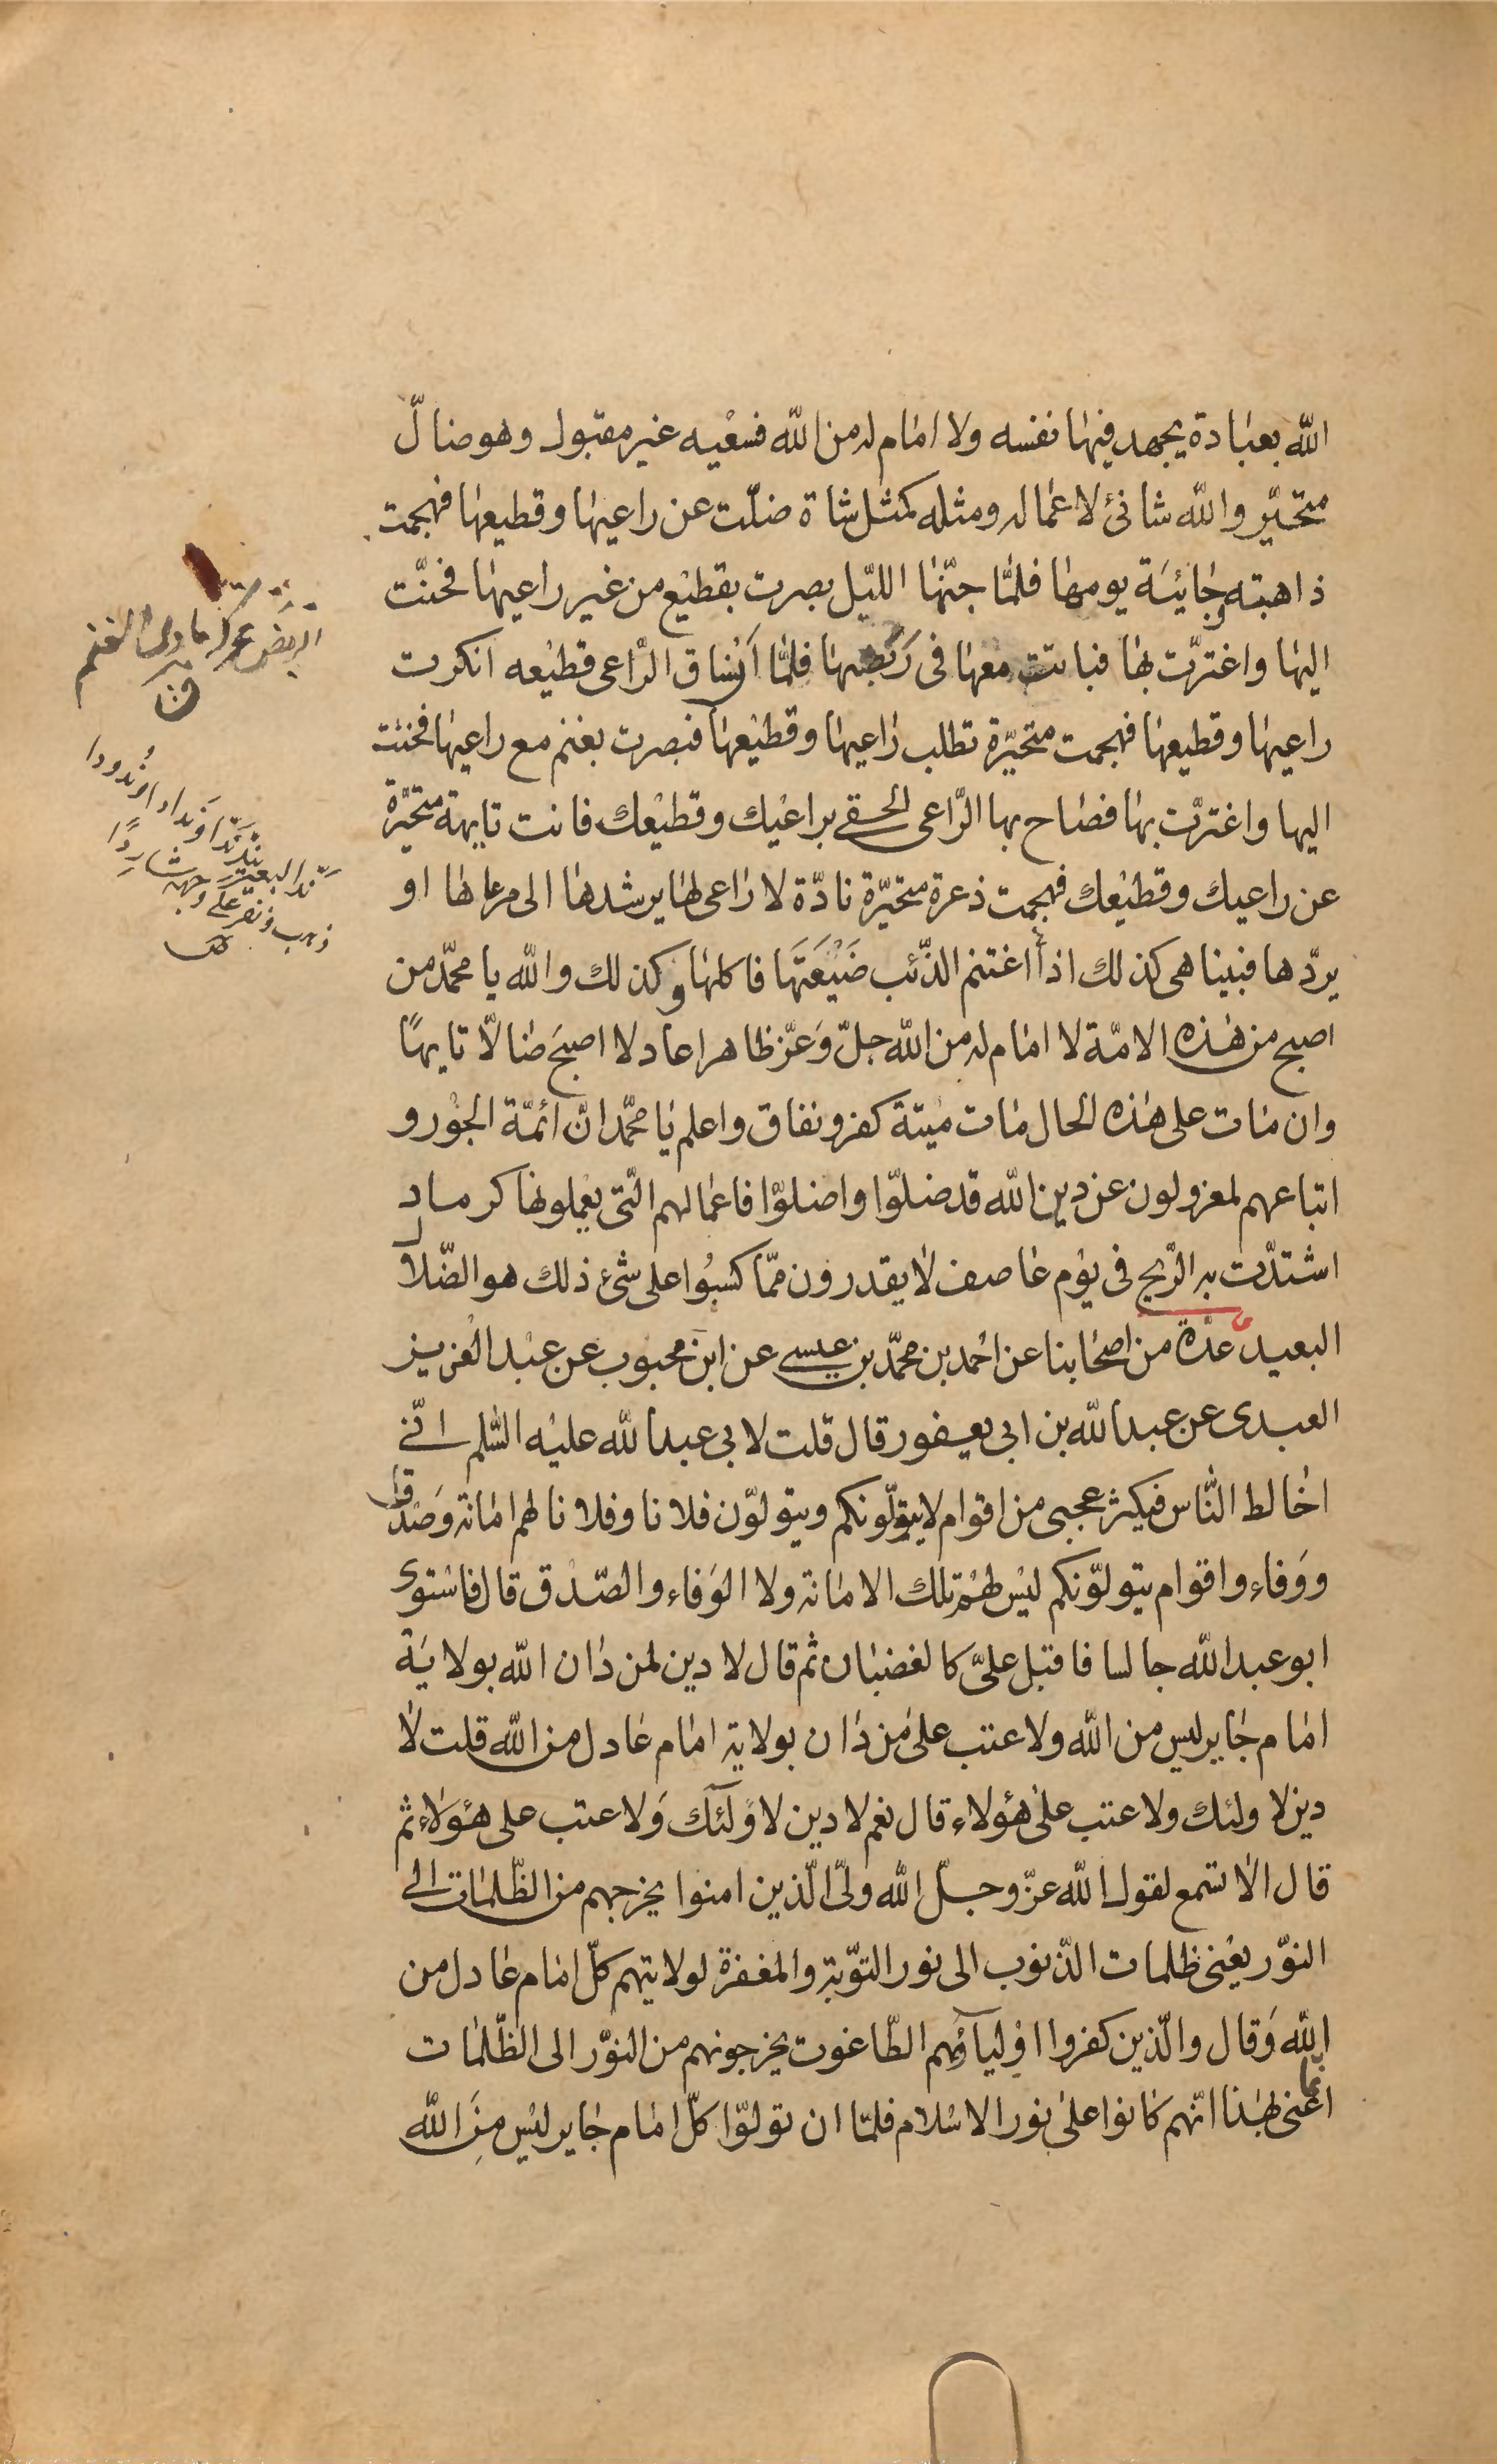 الله بعبادة يجهد فيها نفسه ولا امام له من الله فسعيه غير مقبول وهو ضالّ
متحيّر والله شانئ لاعماله ومثله كمثل شاة ضلّت عن راعيها وقطيعها فهجمت
ذاهبته وجائية يومها فلمّا جنّها الليّل بصرت بقطيع من غير راعيها فحنّت
اليها واغترّت بها فباتت معها فى ربضها فلمّا انساق الرّاعى قطيعه انكرت
راعيها وقطيعها فهجمت متحيّرة تطلب راعيها وقطيعها فبصرت بغنم مع راعيها فحنت
اليها واغترّت بها فصاح بها الرّاعى الحقى براعيك وقطيعك فانت تايهة متحيّرة
عن راعيك وقطيعك فهجمت ذعرة متحيّرة نادّة لا راعى لها يرشدها الى مرعاها او
يردّها فبينا هى كذلك اذا اغتنم الذّئب ضَيْعَتَها فاكلها وكذلك والله يا محمّد من
اصبح من هذه الامّة لا امام له من الله جلّ وَعزّ ظاهرا عادلا اصبَح ضالّا تايهًا
وان مات على هذه الحال مات ميتة كفر ونفاق واعلم يا محمّد انّ ائمّة الجور و
اتباعهم لمعزولون عن دين الله قد ضلوّا واضلوّا فاعمالهم الّتى يعملونها كرماد
اشتدّت به الرّيح فى يوم عاصف لا يقدرون ممّا كسبُوا على شئ ذلك هو الضّلال
البعيد عدّة من اصحابنا عن احمد بن محمّد بن عيسى عن ابن محبوب عن عبد العزيز
العبدى عن عبد الله بن ابى يعفور قال قلت لابى عبد الله عليه السّلم انّى
اخالط النّاس فيكثر عجبى من اقوام لا يتولّونكم ويتولوّن فلانا وفلانا لهم امانة وَصدْق
ووَفاء واقوام يتولوّنكم ليس لهم تلك الامانة ولا الوَفاء والصّدق قال فاستوى
ابو عبد الله جالسا فاقبل علىّ كالغضبان ثم قال لا دين لمن دان الله بولاية
امام جاير ليس من الله ولا عتب على من دان بولاية امام عادل من الله قلت لا
دين لاولئك ولا عتب على هؤلاء قال نعم لا دين لاولئك وَلا عتب على هؤلاء ثم
قال الا تسمع لقول الله عزّ وجلّ الله ولىّ الّذين امنوا يخرجهم من الظّلمات الى
النوّر يعنى ظلمات الذّنوب الى نور التوّبة والمغفرة لولايتهم كلّ امام عادل من
الله وَقال والّذين كفروا اوْلياؤهم الطّاغوت يخرجونهم من النوّر الى الظّلمات
انما عنى بهذا انّهم كانوا على نور الاسلام فلمّا ان تولوّا كلّ امام جاير ليس مِنَ الله
الربض محركة ماوى الغنم
ق
ندّ البعير يندّ ندّا وندادا وندُودا
ذهب ونفر على وجهه شاردًا